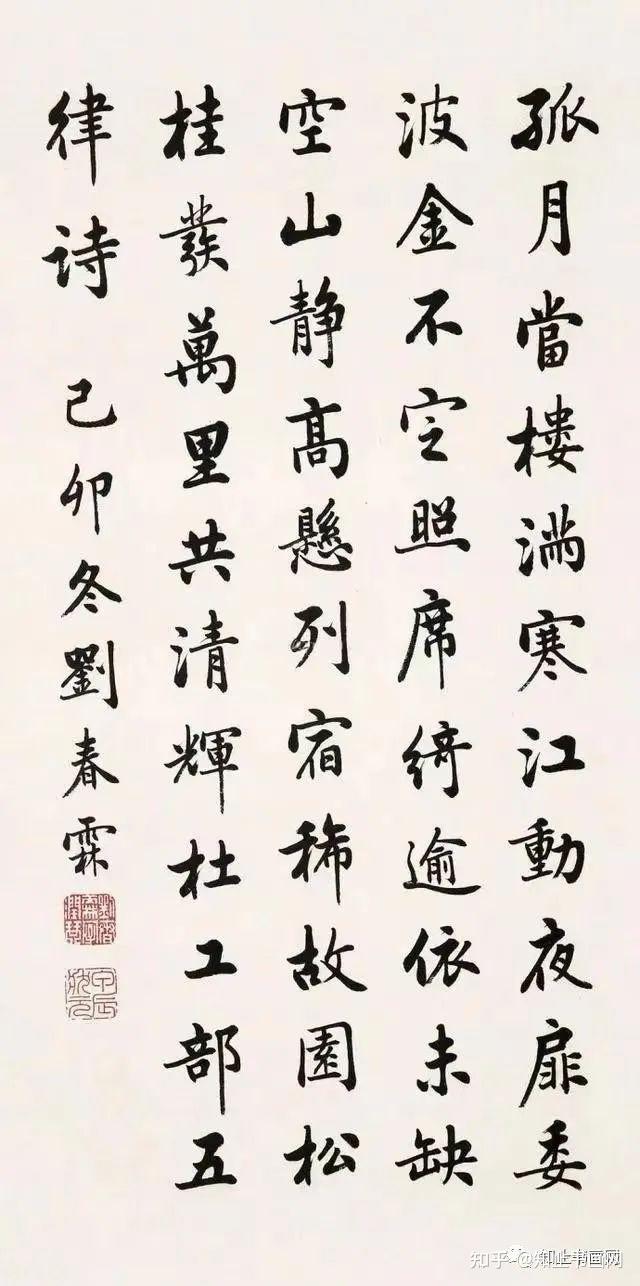 孤月當樓滿寒江動夜扉委
波金不定照席綺逾依未缺
空山静高懸列宿稀故園松
桂發萬里共清輝杜工部五
律诗 己卯冬劉春霖
知乎 @知止书画网